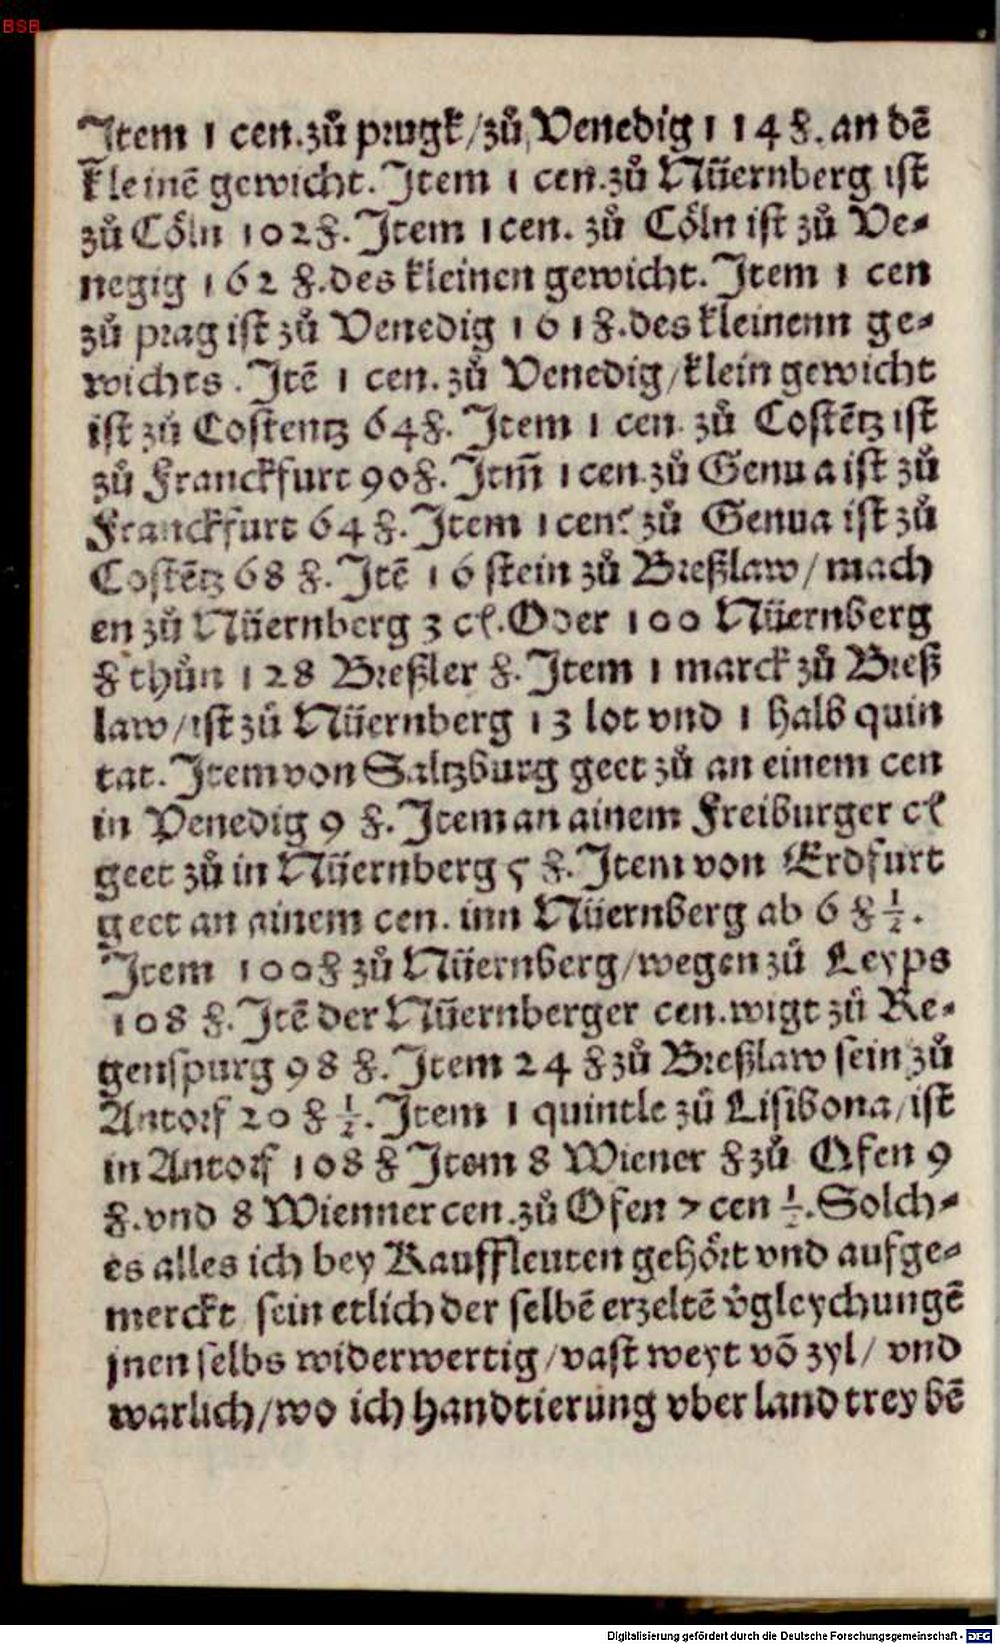 BSB
Item 1 cen. zů prugk/zů Venedig 1 1 4 ℔. an dē
kleinē gewicht. Item 1 cen. zů Nüernberg ist
zů Cöln 102 ℔. Item 1 cen. zů Cöln ist zů Ve⸗
negig 162 ℔. des kleinen gewicht. Item 1 cen
zů prag ist zů Venedig 161 ℔. des kleinenn ge⸗
wichts. Itē 1 cen. zů Venedig/klein gewicht
ist zů Costentz 64 ℔. Item 1 cen. zů Costētz ist
zů Franckfurt 90 ℔. Itm̄ 1 cen. zů Genua ist zů
Franckfurt 64 ℔. Item 1 cen. zů Genua ist zů
Costētz 68 ℔. Itē 16 stein zů Breßlaw/mach
en zů Nüernberg 3 cl. Oder 100 Nüernberg
℔ thůn 128 Breßler ℔. Item 1 marck zů Breß
law/ist zů Nüernberg 13 lot vnd 1 halb quin
tat. Item von Saltzburg geet zů an einem cen
in Venedig 9 ℔. Item an ainem Freiburger cl
geet zů in Nüernberg 5 ℔. Item von Erdfurt
geet an ainem cen. inn Nüernberg ab 6 ℔ ½.
Item 100 ℔ zů Nüernberg/wegen zů Leyps
108 ℔. Itē der Nüernberger cen. wigt zů Re⸗
genspurg 98 ℔. Item 24 ℔ zů Breßlaw sein zů
Antorf 20 ℔ ½. Item 1 quintle zů Lisibona/ist
in Antorf 108 ℔ Item 8 Wiener ℔ zů Ofen 9
℔. vnd 8 Wienner cen. zů Ofen 7 cen ½. Solch⸗
es alles ich bey Kauffleuten gehört vnd aufge⸗
merckt sein etlich der selbē erzeltē v̊gleychungē
jnen selbs widerwertig/vast weyt vō zyl/ vnd
warlich/wo ich handtierung vber land treybē
Digitalisierung gefördert durch die Deutsche Forschungsgemeinschaft - DFG